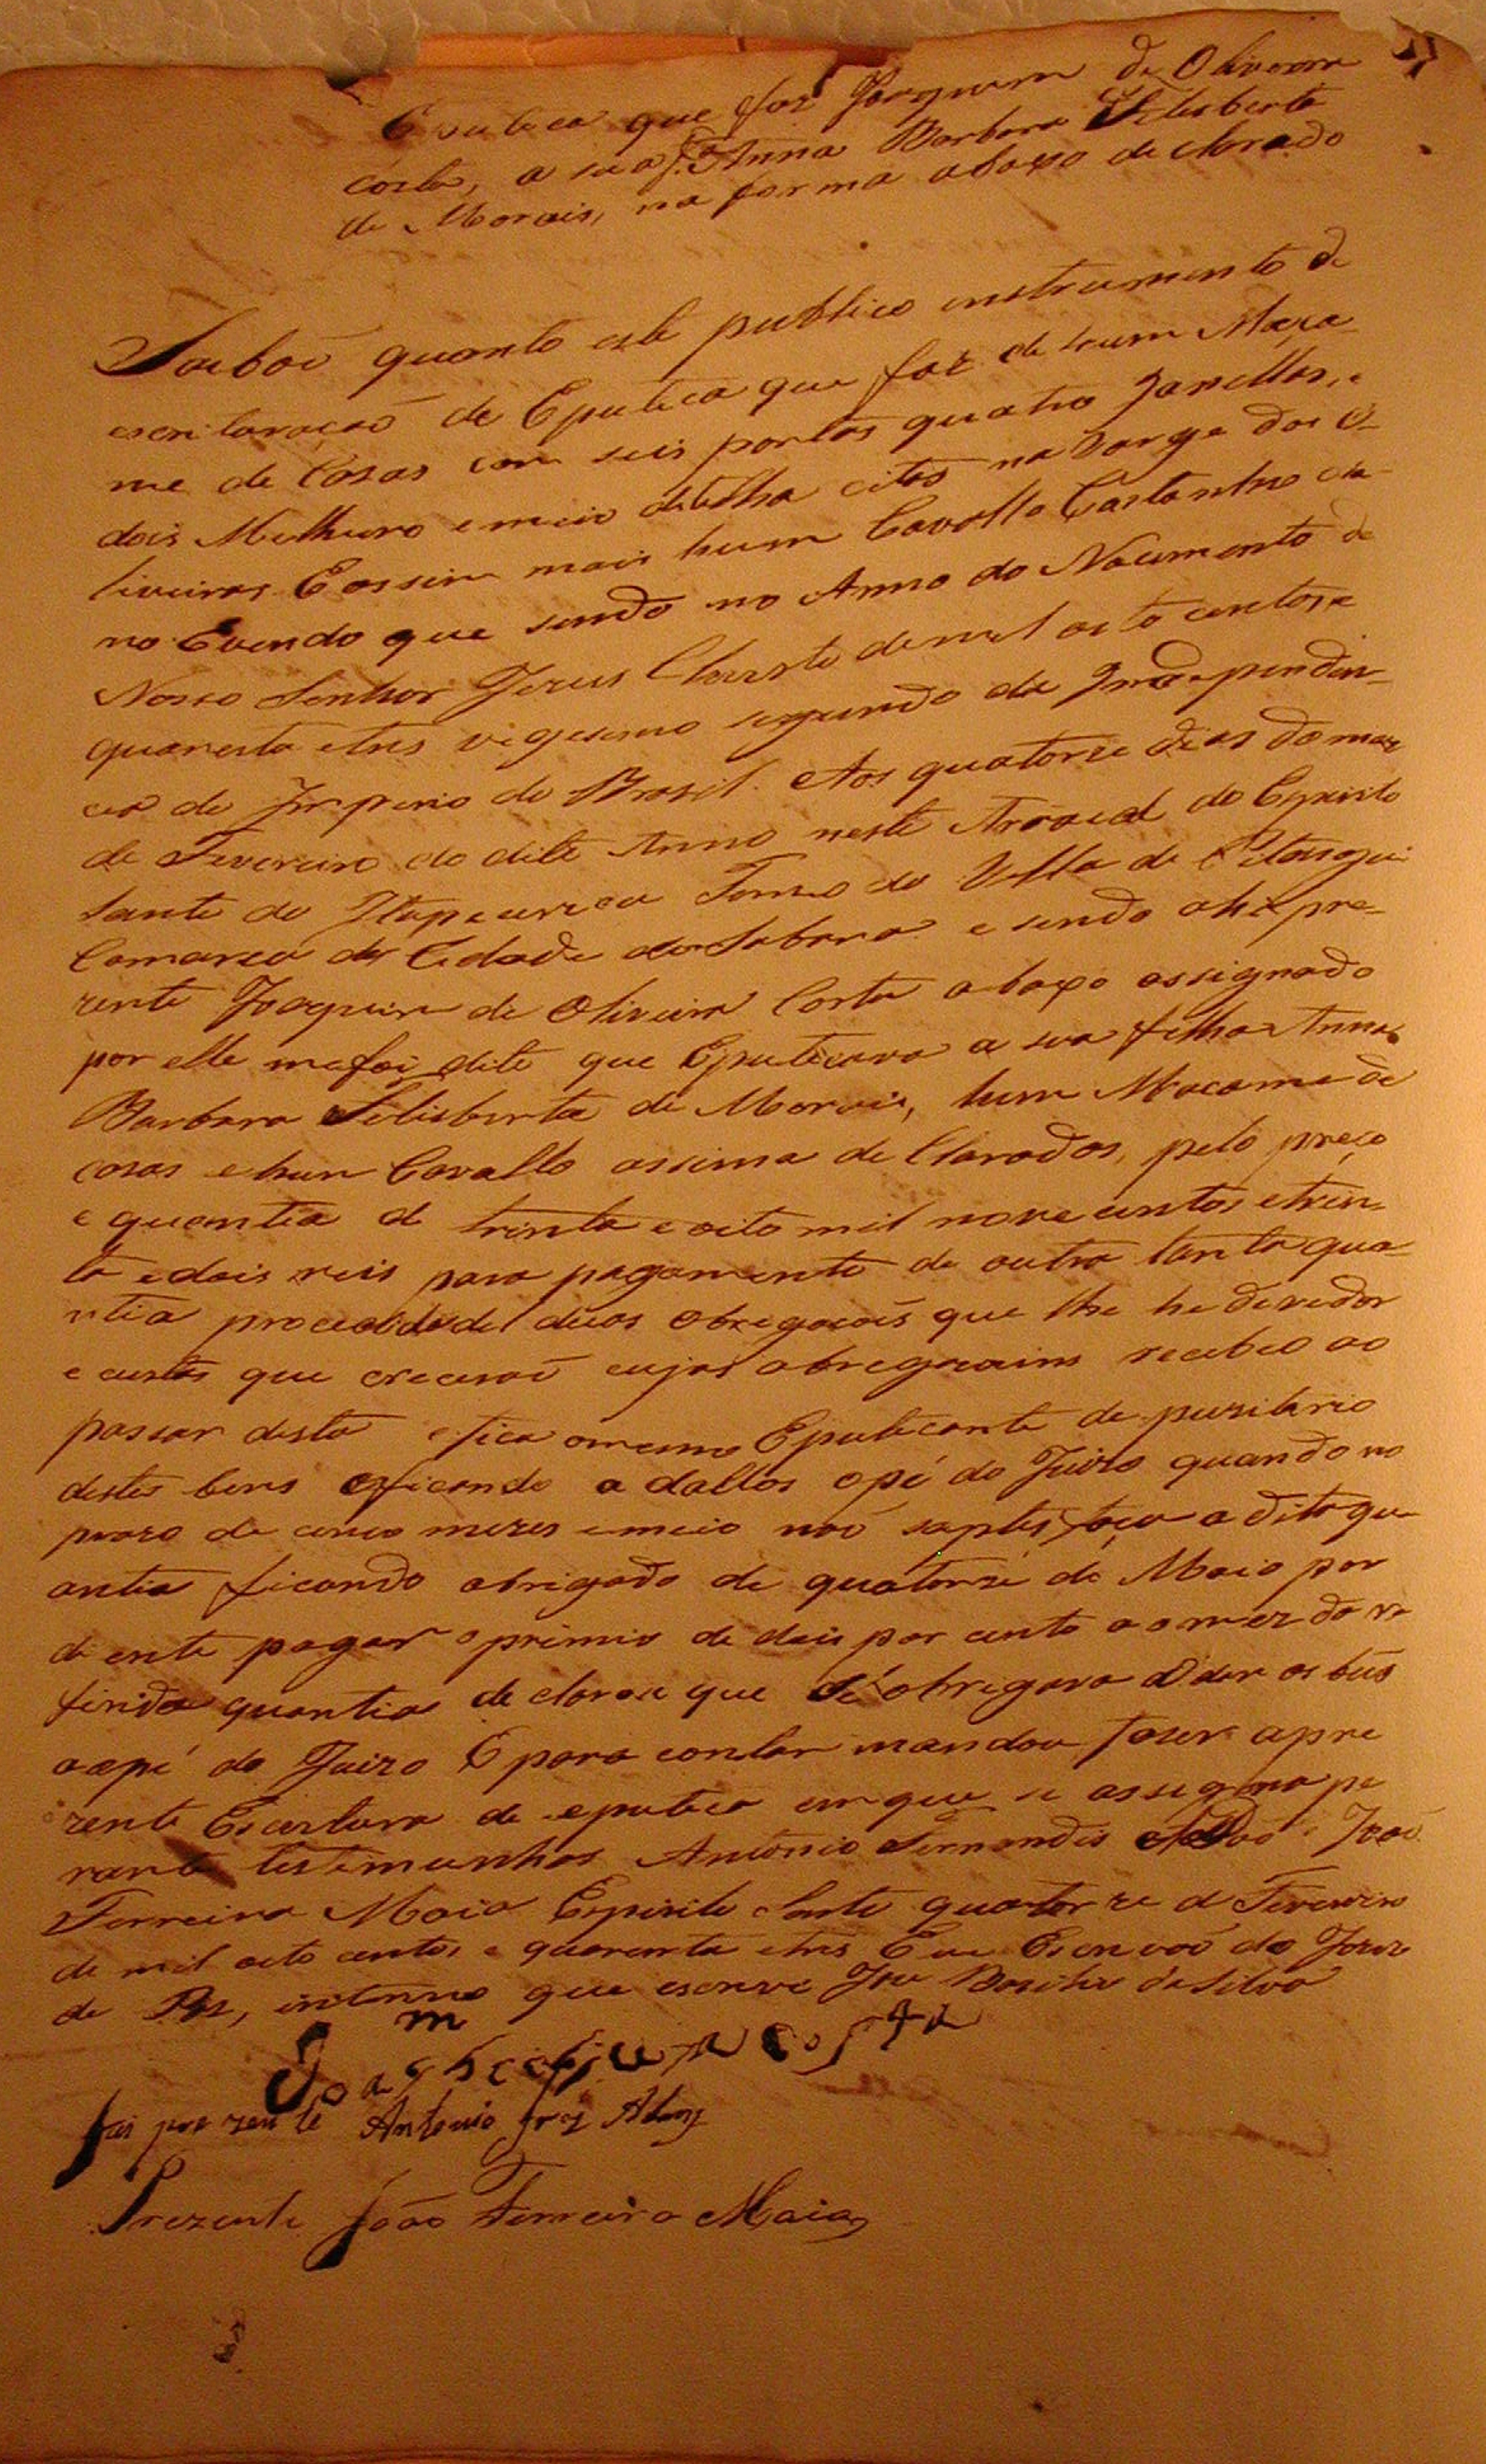 Eputeca que faz Joaquim de Oliveira
Costa, a sua f.ª Anna Barbara Felisberta
de Morais, na forma abaxo declarado
Saibaõ quanto este publico instrumento de
escrituraçaõ de Eputeca que faz de hum Maça
me de Casas com seis portas quatro Janellas, e
dois Milheiro e meio de telha citas na Varge das O
liveiras E assim mais hum Cavallo Castanho
no Evendo que sendo no Anno do Nacimento de
Nosso Senhor Jezus Christo de mil oito centos e
quarenta e tres vigesimo segundo da Independen
cia do Imperio do Brasil. Aos quatorze dias do mez
de Fevereiro do dito Anno neste Arraial do Espirito
Santo do Itapecerica Termo da Villa de Pitangui
Comarca da Cidade do Sabara e sendo ahi pre
zente Joaquim de Oliveira Costa abaxo assignado
por elle me foi dito que Eputecava a sua filha Anna
Barbara Felisberta de Morais, hum Maçame de
casas e hum Cavallo assima de Clarados, pelo preço
e quantia de trinta e oito mil nove centos e trin
ta e dois reis para pagamento de outra tanta qua
ntia procedida de duas obrigaçois que lhe he devedor
e custas que creceraõ cujas obregacoins recebeo ao
passar desta e fica o mesmo Eputecante de puzitario
destes bens e ficando a dallos o pé do Juizo quando no
prazo de cinco mezes e meio naõ saptisfaça a dita qu
antia ficando obrigado de quatorze de Maio por
diente pagar o premio de dois por cento ao mez da re
firida quantia declarou que se obrigava a dar os bẽs
ao pé do Juizo E para constar mandou fazer a pre
zente Escritura de eputeca em que se assigna pe
rante testimunhas Antonio Fernandis João
Ferreira Maia Espirito Santo quatorze de Fevereiro
de mil oito centos e quarenta e tres Eu Escrivaõ do Juizo
de Paz, interino que escrevi Jose Basilio da Silva
Joaqm de oliveira costa
fui prezente Antonio Frz
Prezente João Ferreira Maia